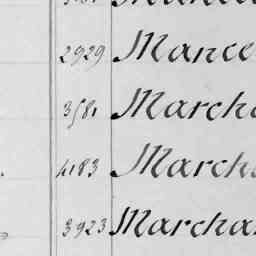 2929 Mance
3581 March
4183 March
3923 Marcha